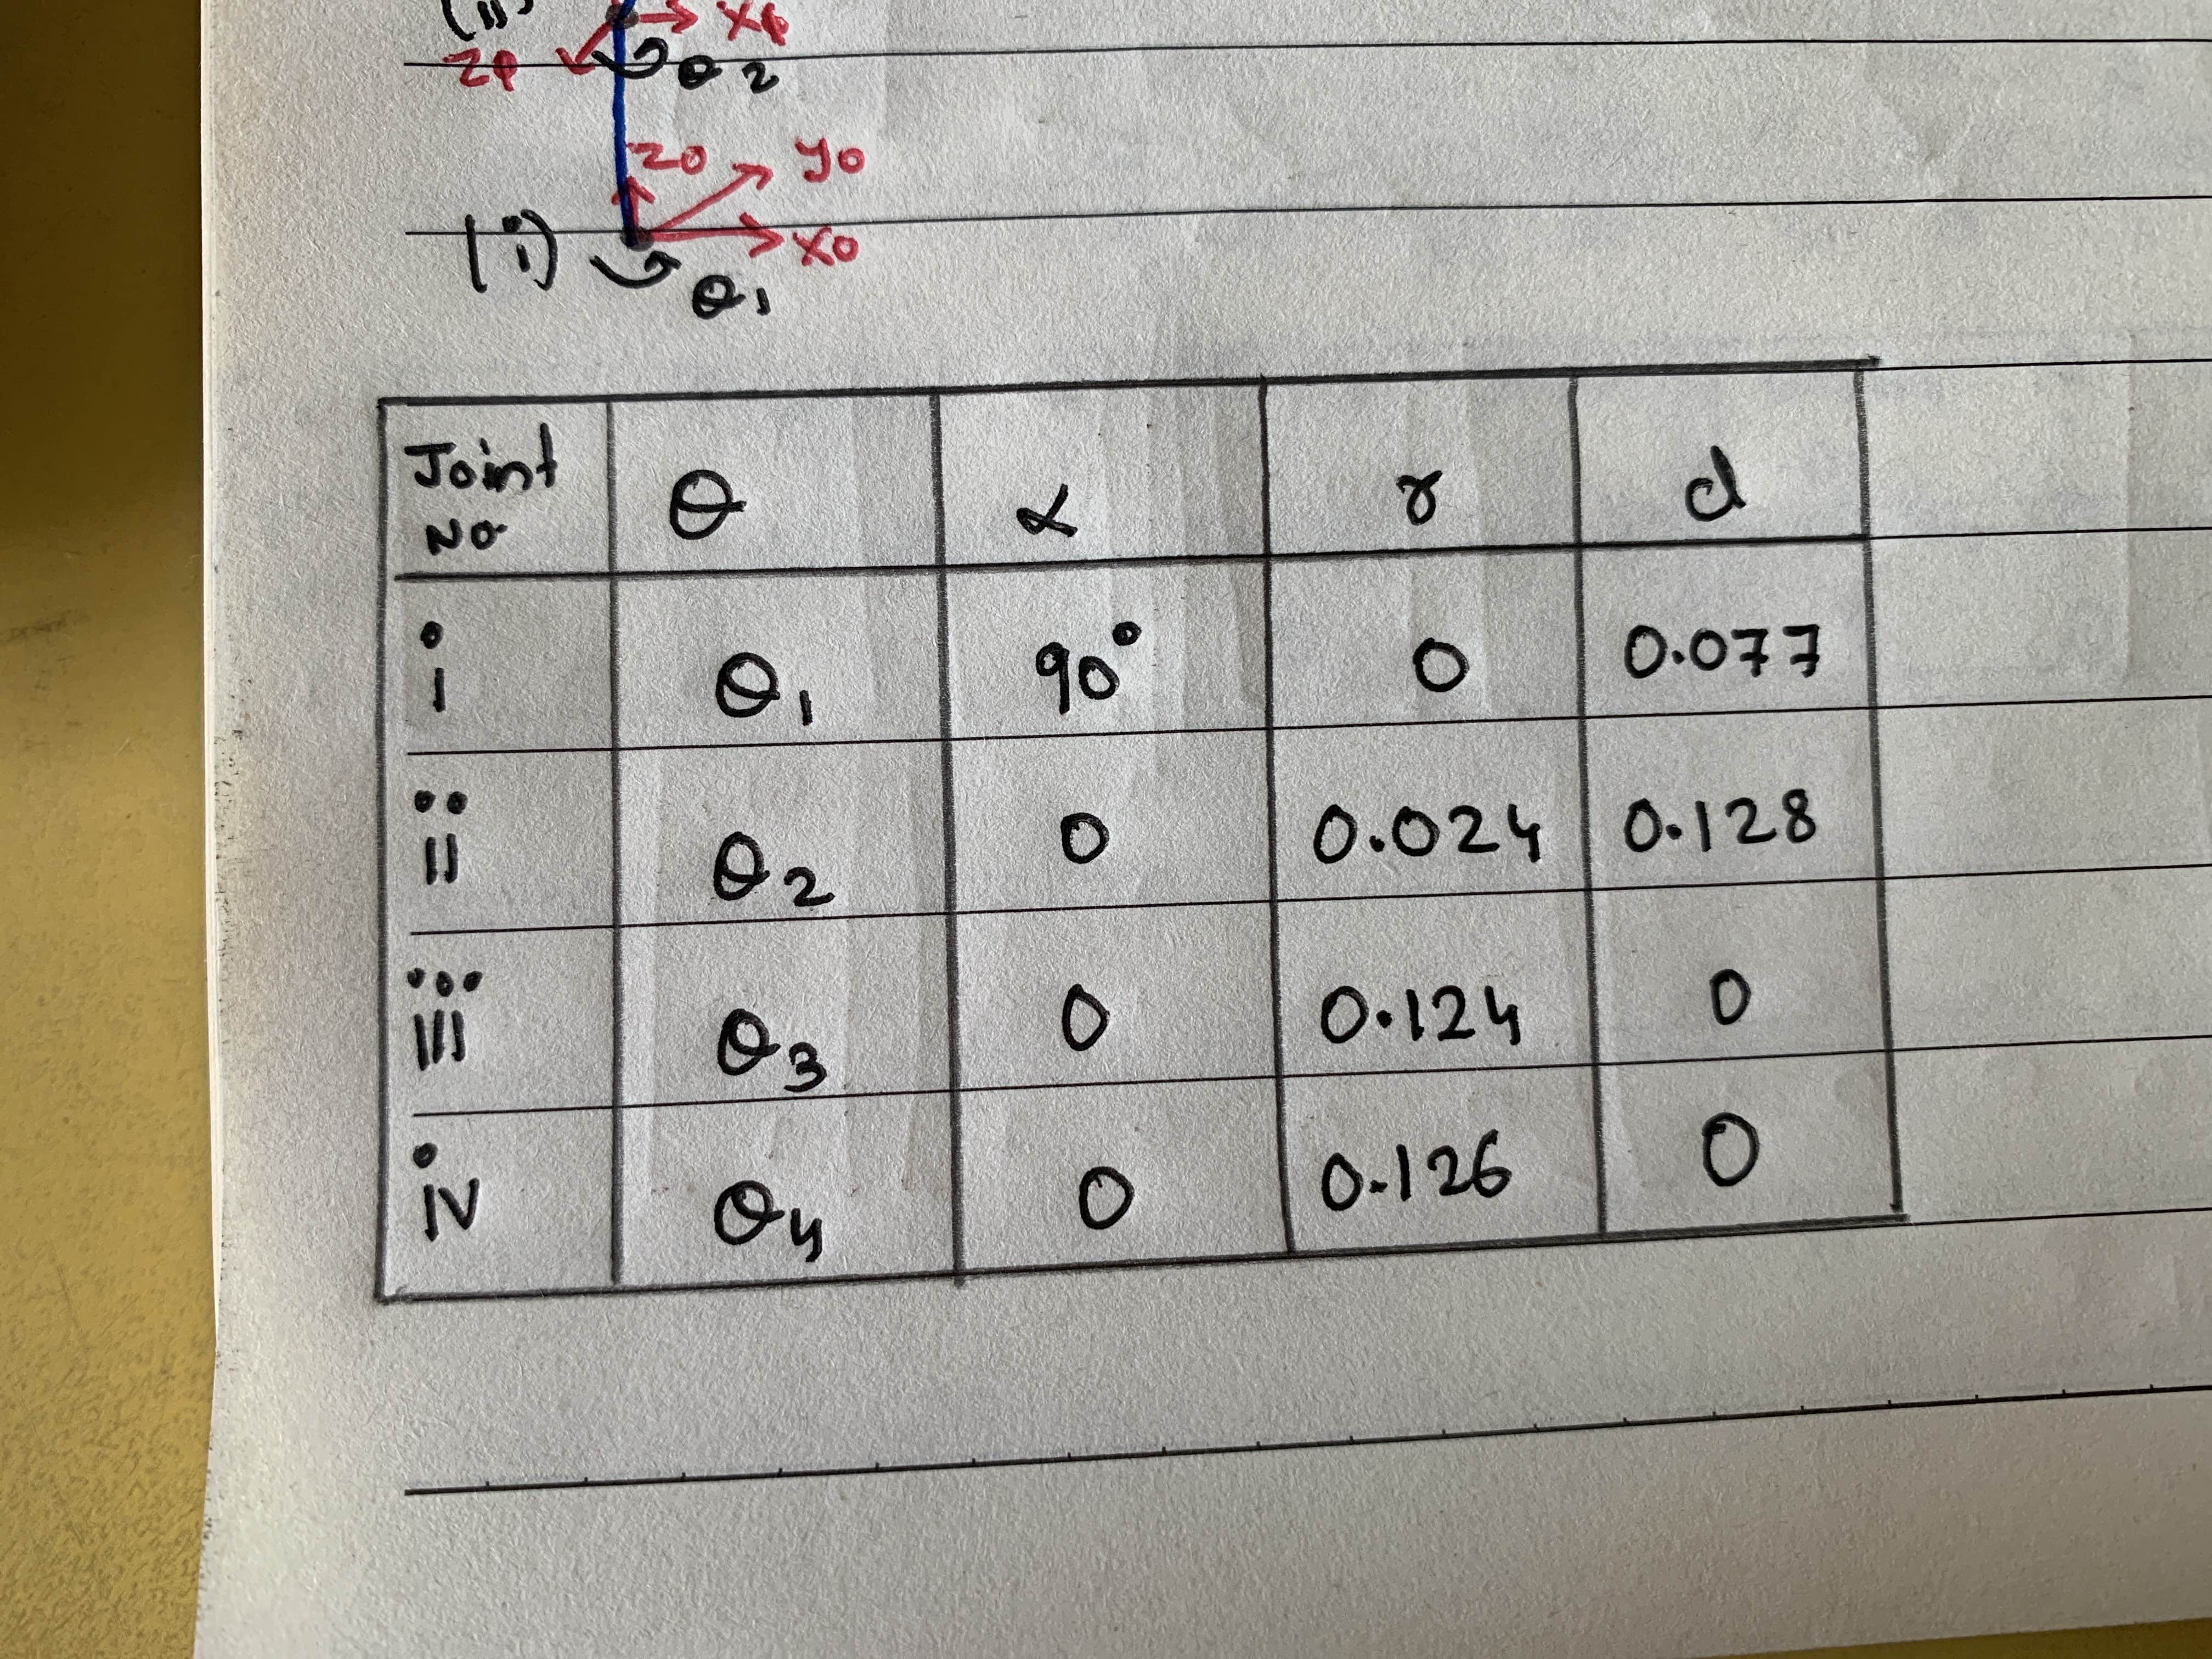 (ii)
x1
z1
θ2
z0
y0
(i)
x0
θ1
Joint No θ α r d
i θ1 90° 0 0.077
ii θ2 0 0.024 0.128
iii θ3 0 0.124 0
iv θ4 0 0.126 0